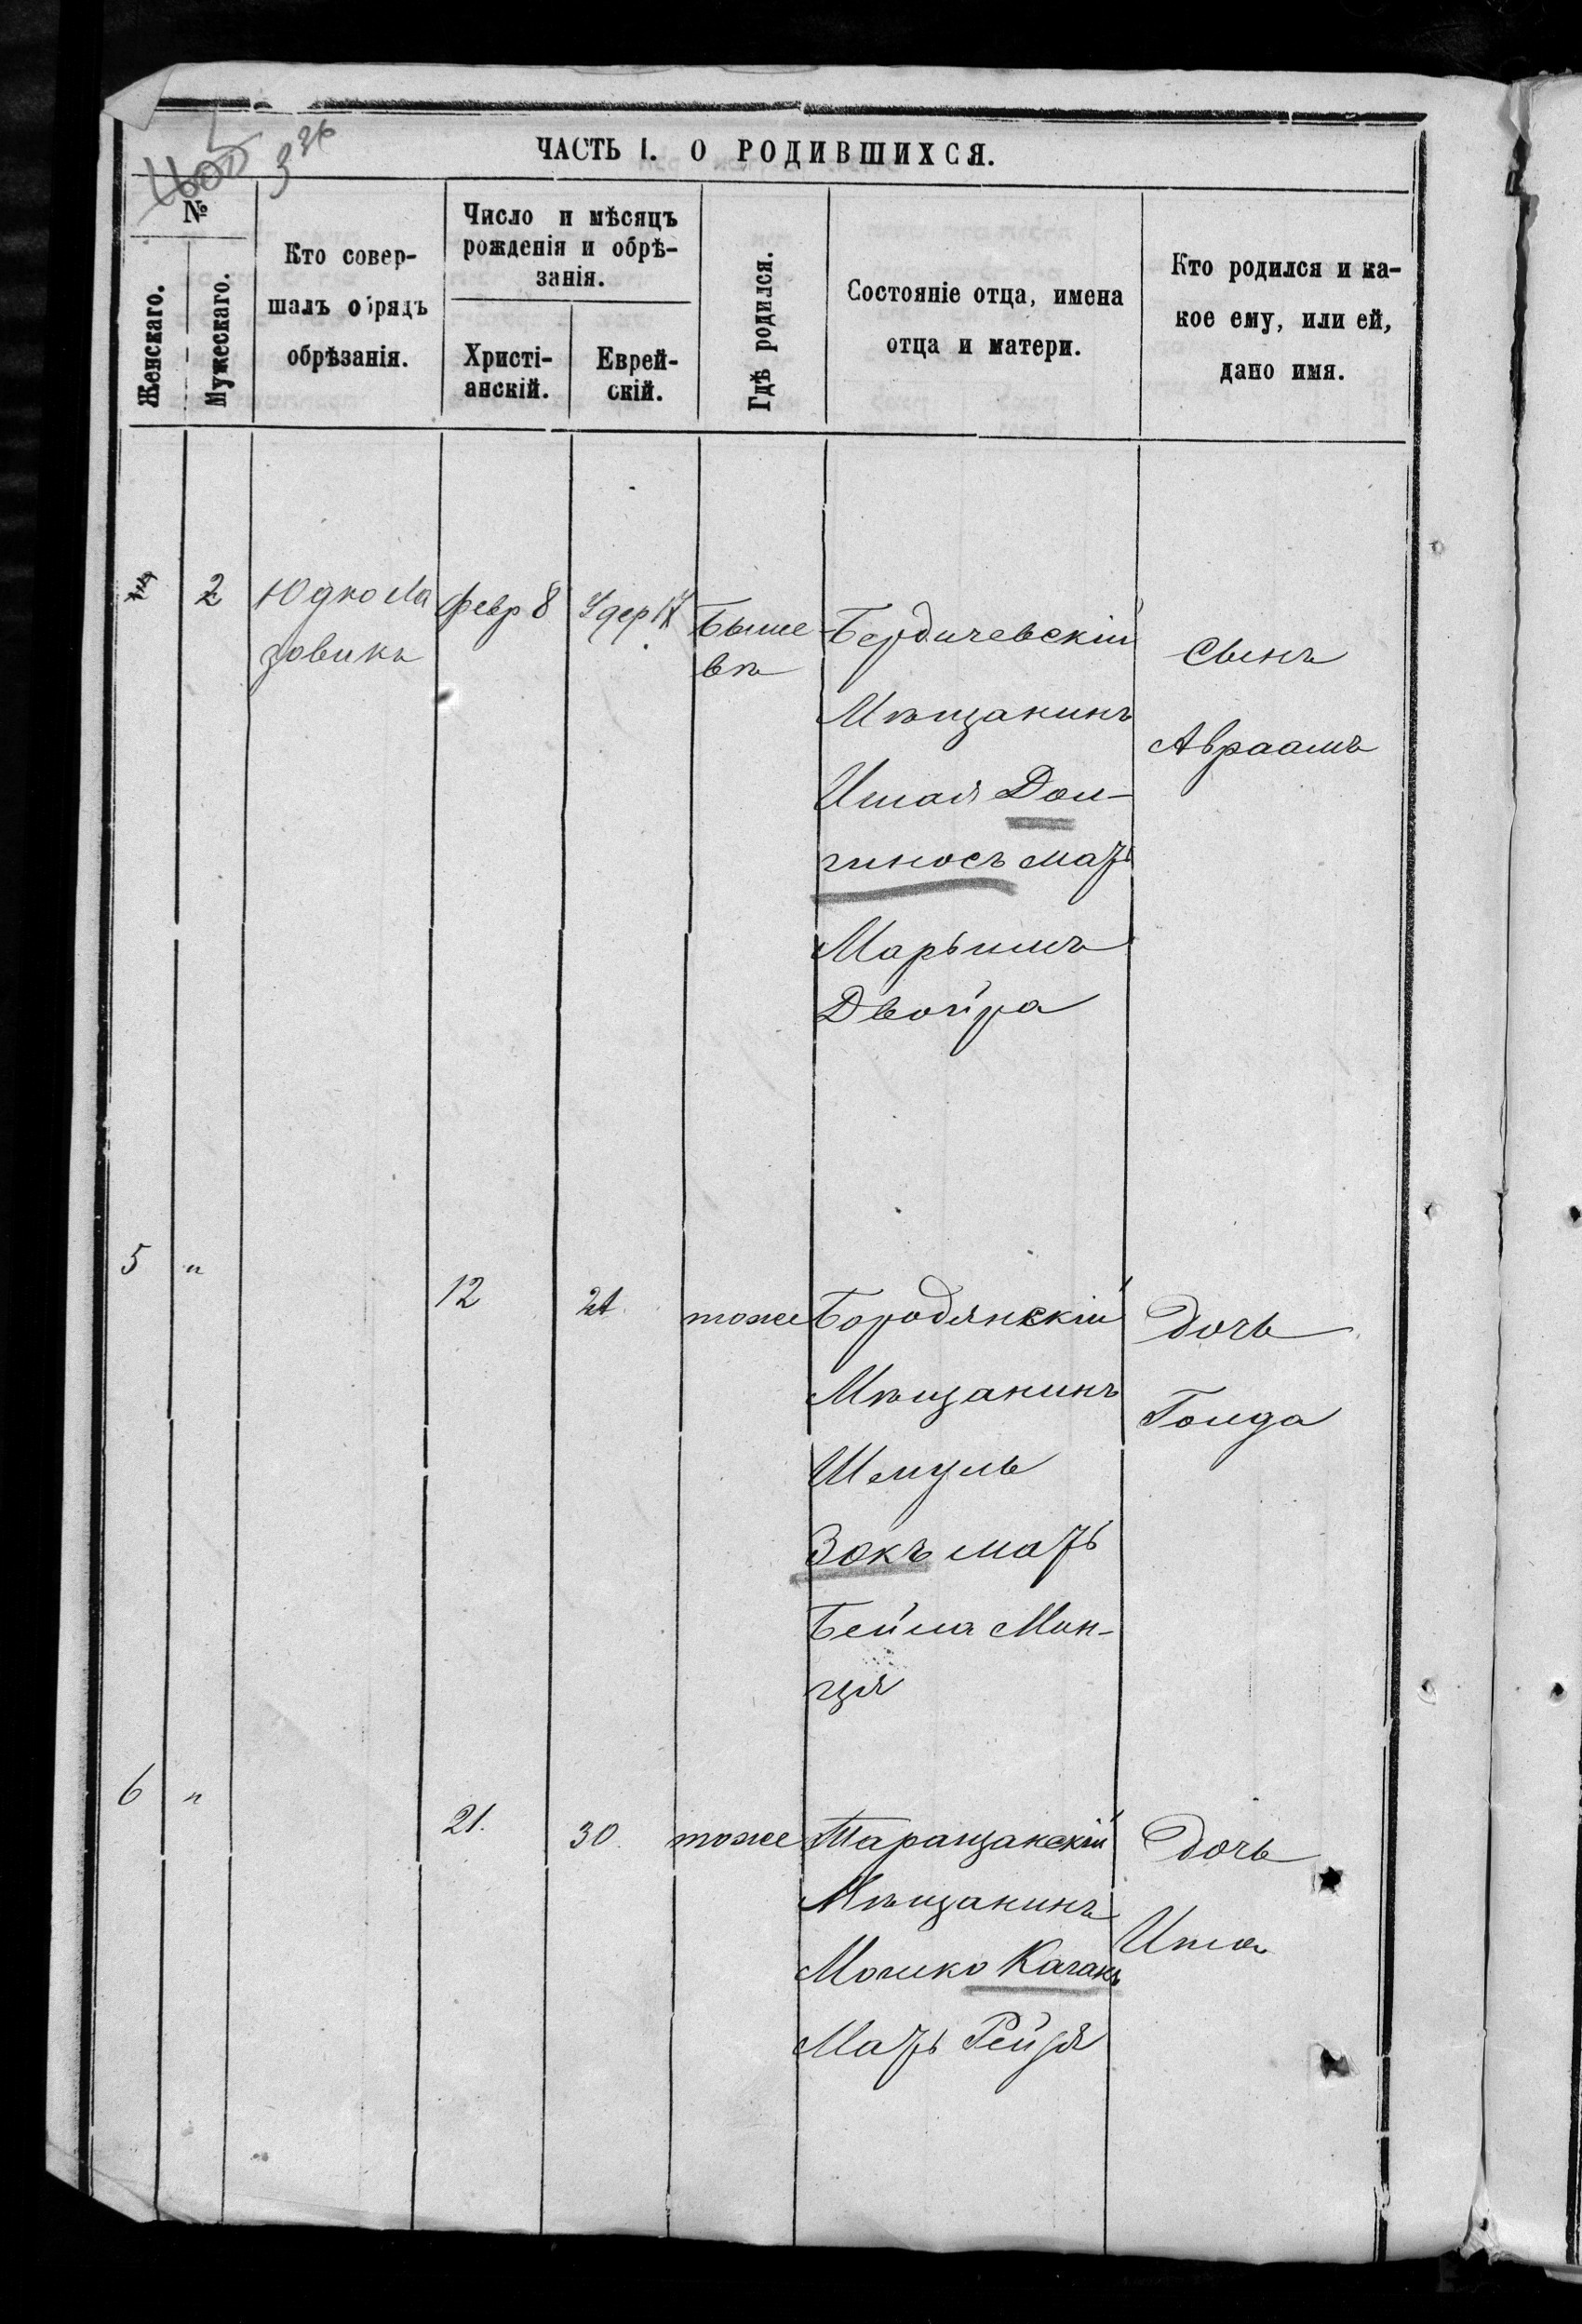 ЧАСТЬ I. О РОДИВШИХСЯ.
№
Женскаго.
Мужескаго.
Кто совер-
шалъ обрядъ
обрѣзанія.
Число и мѣсяцъ
рожденія и обрѣ-
занія.
Христі-
анскій.
Еврей-
скій.
Гдѣ родился.
Состояніе отца, имена
отца и матери.
Кто родился и ка-
кое ему, или ей,
дано имя.
2
Юдко Ла
зовикъ
Февр 8
Удер 17
Быше
въ
Бердичевскій
Мѣщанинъ
Ишая Дол-
гиносъ мать
Марьимъ
Двойра
Сынъ
Авраамъ
5
"
12
21
тоже
Бородянскій
Мѣщанинъ
Шмуль
Зокъ мать
Бейла Мин-
ця
Дочь
Голда
6
"
21.
30.
тоже
Таращанскій
Мѣщанинъ
Мошко Каганъ
Мать Рейзя
Дочь
Ита